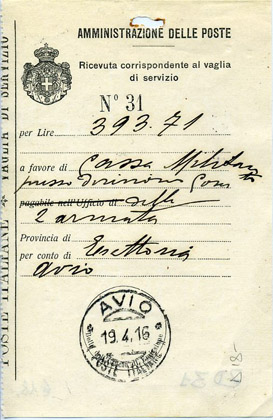 AMMINISTRAZIONE DELLE POSTE
Ricevuta corrispondente al vaglia
di servizio
N° 31
per Lire 393.71
a favore di Cassa Militare
presso Divisione
pagabile nell'Ufficio di della
2 armata
Provincia di
per conto di Esattoria
Avio
AVIO
19.4.16
POSTE ITALIANE
POSTE ITALIANE * VAGLIA DI SERVIZIO